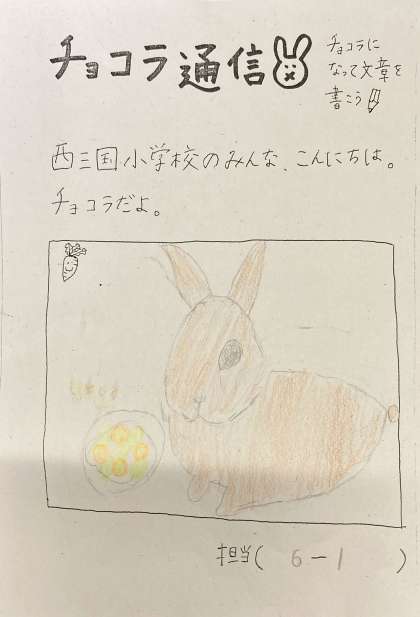 チョコラ通信
チョコラに
なって文章を
書こう
西三国小学校のみんな、こんにちは。
チョコラだよ。
担当( 6-1 )